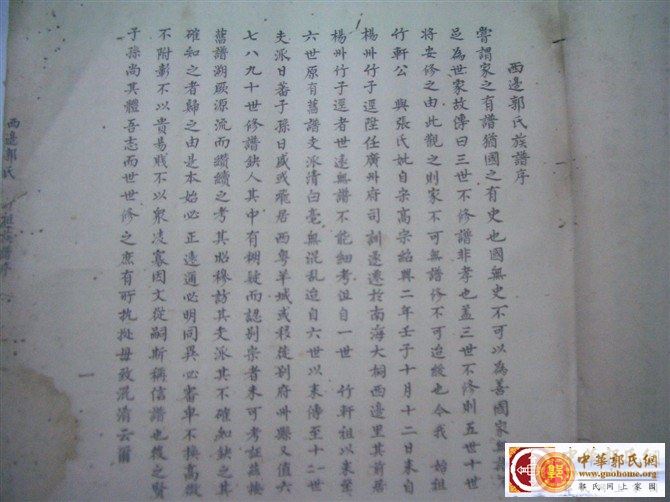 西邊郭氏族譜序
嘗謂家之有譜猶國之有史也國無史不可以為善國家無譜
為世家故傳曰三世不修譜非孝也蓋三世不修則五世十世
將安修之由此觀之則家不可無譜修不可迨緩也今我 始祖
竹軒公 與張氏妣自宋高宗紹興二年壬子十月十二日來自
楊州竹子逕陞任廣州府司訓遂遷於南海大桐西邊里其前居
楊州竹子逕者世遠無譜不能細考徂自一世 竹軒祖以來至
六世原有舊譜支派清白毫無混亂迨自六世以來傳至十二世
支派日蕃子孫日盛或飛居西粵羊城或移徙別府州縣又值六
七八九十世修譜缺人其中有糊疑而認別宗者未可考証茲按
舊譜溯厥源流而纘續之考其昭穆訪其支派其不確知缺之其
確知之者歸之由是本始必正遠通必明同異必審卑不換高
不附彰不以貴易賤不以眾凌寡因文從嗣斯稱信譜也後之賢
子孫尚其體吾志而世世修之庶有所執拋毋致混淆云爾
西邊郭氏
譜序
中華郭氏網
www.guohome.org
郭氏網上家園